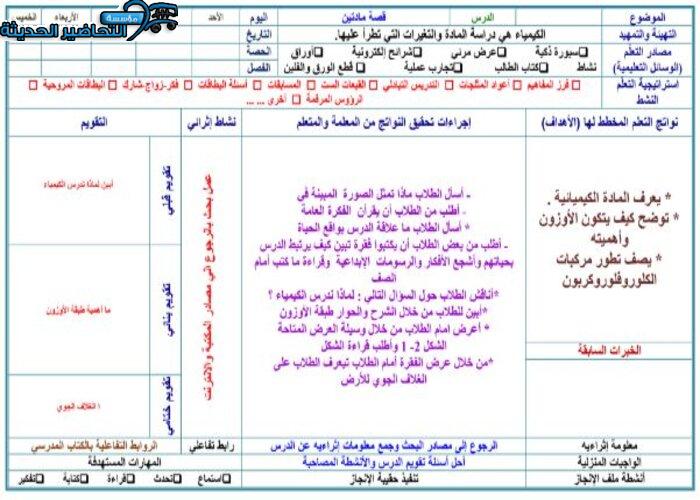 مؤسسة
التحاضير الحديثة
الموضوع الدرس قصة مادتين اليوم الأحد الأربعاء الخميس
التهيئة والتمهيد الكيمياء هي دراسة المادة والتغيرات التي تطرأ عليها. التاريخ
مصادر التعلم □ سبورة ذكية □ عرض مرئي □ شرائح إلكترونية □ أوراق الحصة
(الوسائل التعليمية) نشاط □ كتاب الطالب □ تجارب عملية □ قطع الورق والفلين الفصل
استراتيجية التعلم □ فرز المفاهيم □ أعواد المثلجات □ التدريس التبادلي □ القبعات الست □ المسابقات □ أسئلة البطاقات □ فكر-زواج-شارك □ البطاقات المروحية
النشط □ الرؤوس المرقمة □ أخرى ... ...
نواتج التعلم المخطط لها (الأهداف)
* يعرف المادة الكيميائية .
* توضح كيف يتكون الأوزون
وأهميته
* يصف تطور مركبات
الكلوروفلوروكربون
الخبرات السابقة
إجراءات تحقيق النواتج من المعلمة والمتعلم
- أسأل الطلاب ماذا تمثل الصورة المبينة في
- أطلب من الطلاب أن يقرأن الفكرة العامة
* أسأل الطلاب ما علاقة الدرس بواقع الحياة
- أطلب من بعض الطلاب أن يكتبوا فقرة تبين كيف يرتبط الدرس
بحياتهم وأشجع الأفكار والرسومات الإبداعية وقراءة ما كتب أمام
الصف
*أناقش الطلاب حول السؤال التالي : لماذا ندرس الكيمياء ؟
*أبين للطلاب من خلال الشرح والحوار طبقة الأوزون
* أعرض امام الطلاب من خلال وسيلة العرض المتاحة
الشكل 2- 1 وأطلب قراءة الشكل
*من خلال عرض الفقرة أمام الطلاب تيعرف الطلاب على
الغلاف الجوي للأرض
نشاط إثرائي
عمل بحث بالرجوع الي مصادر المكتبة والانترنت
التقويم
تقويم قبلي
أبين لماذا ندرس الكيمياء
تقويم بنائي
ما أهمية طبقة الأوزون
تقويم ختامي
الغلاف الجوي
معلومة إثرائيه الرجوع إلى مصادر البحث وجمع معلومات إثراءيه عن الدرس رابط تفاعلي الروابط التفاعلية بالكتاب المدرسي
الواجبات المنزلية أحل أسئلة تقويم الدرس والأنشطة المصاحبة المهارات المستهدفة
أنشطة ملف الإنجاز تنفيذ حقيبة الإنجاز □ استماع □ تحدث □ قراءة □ كتابة □ تفكير